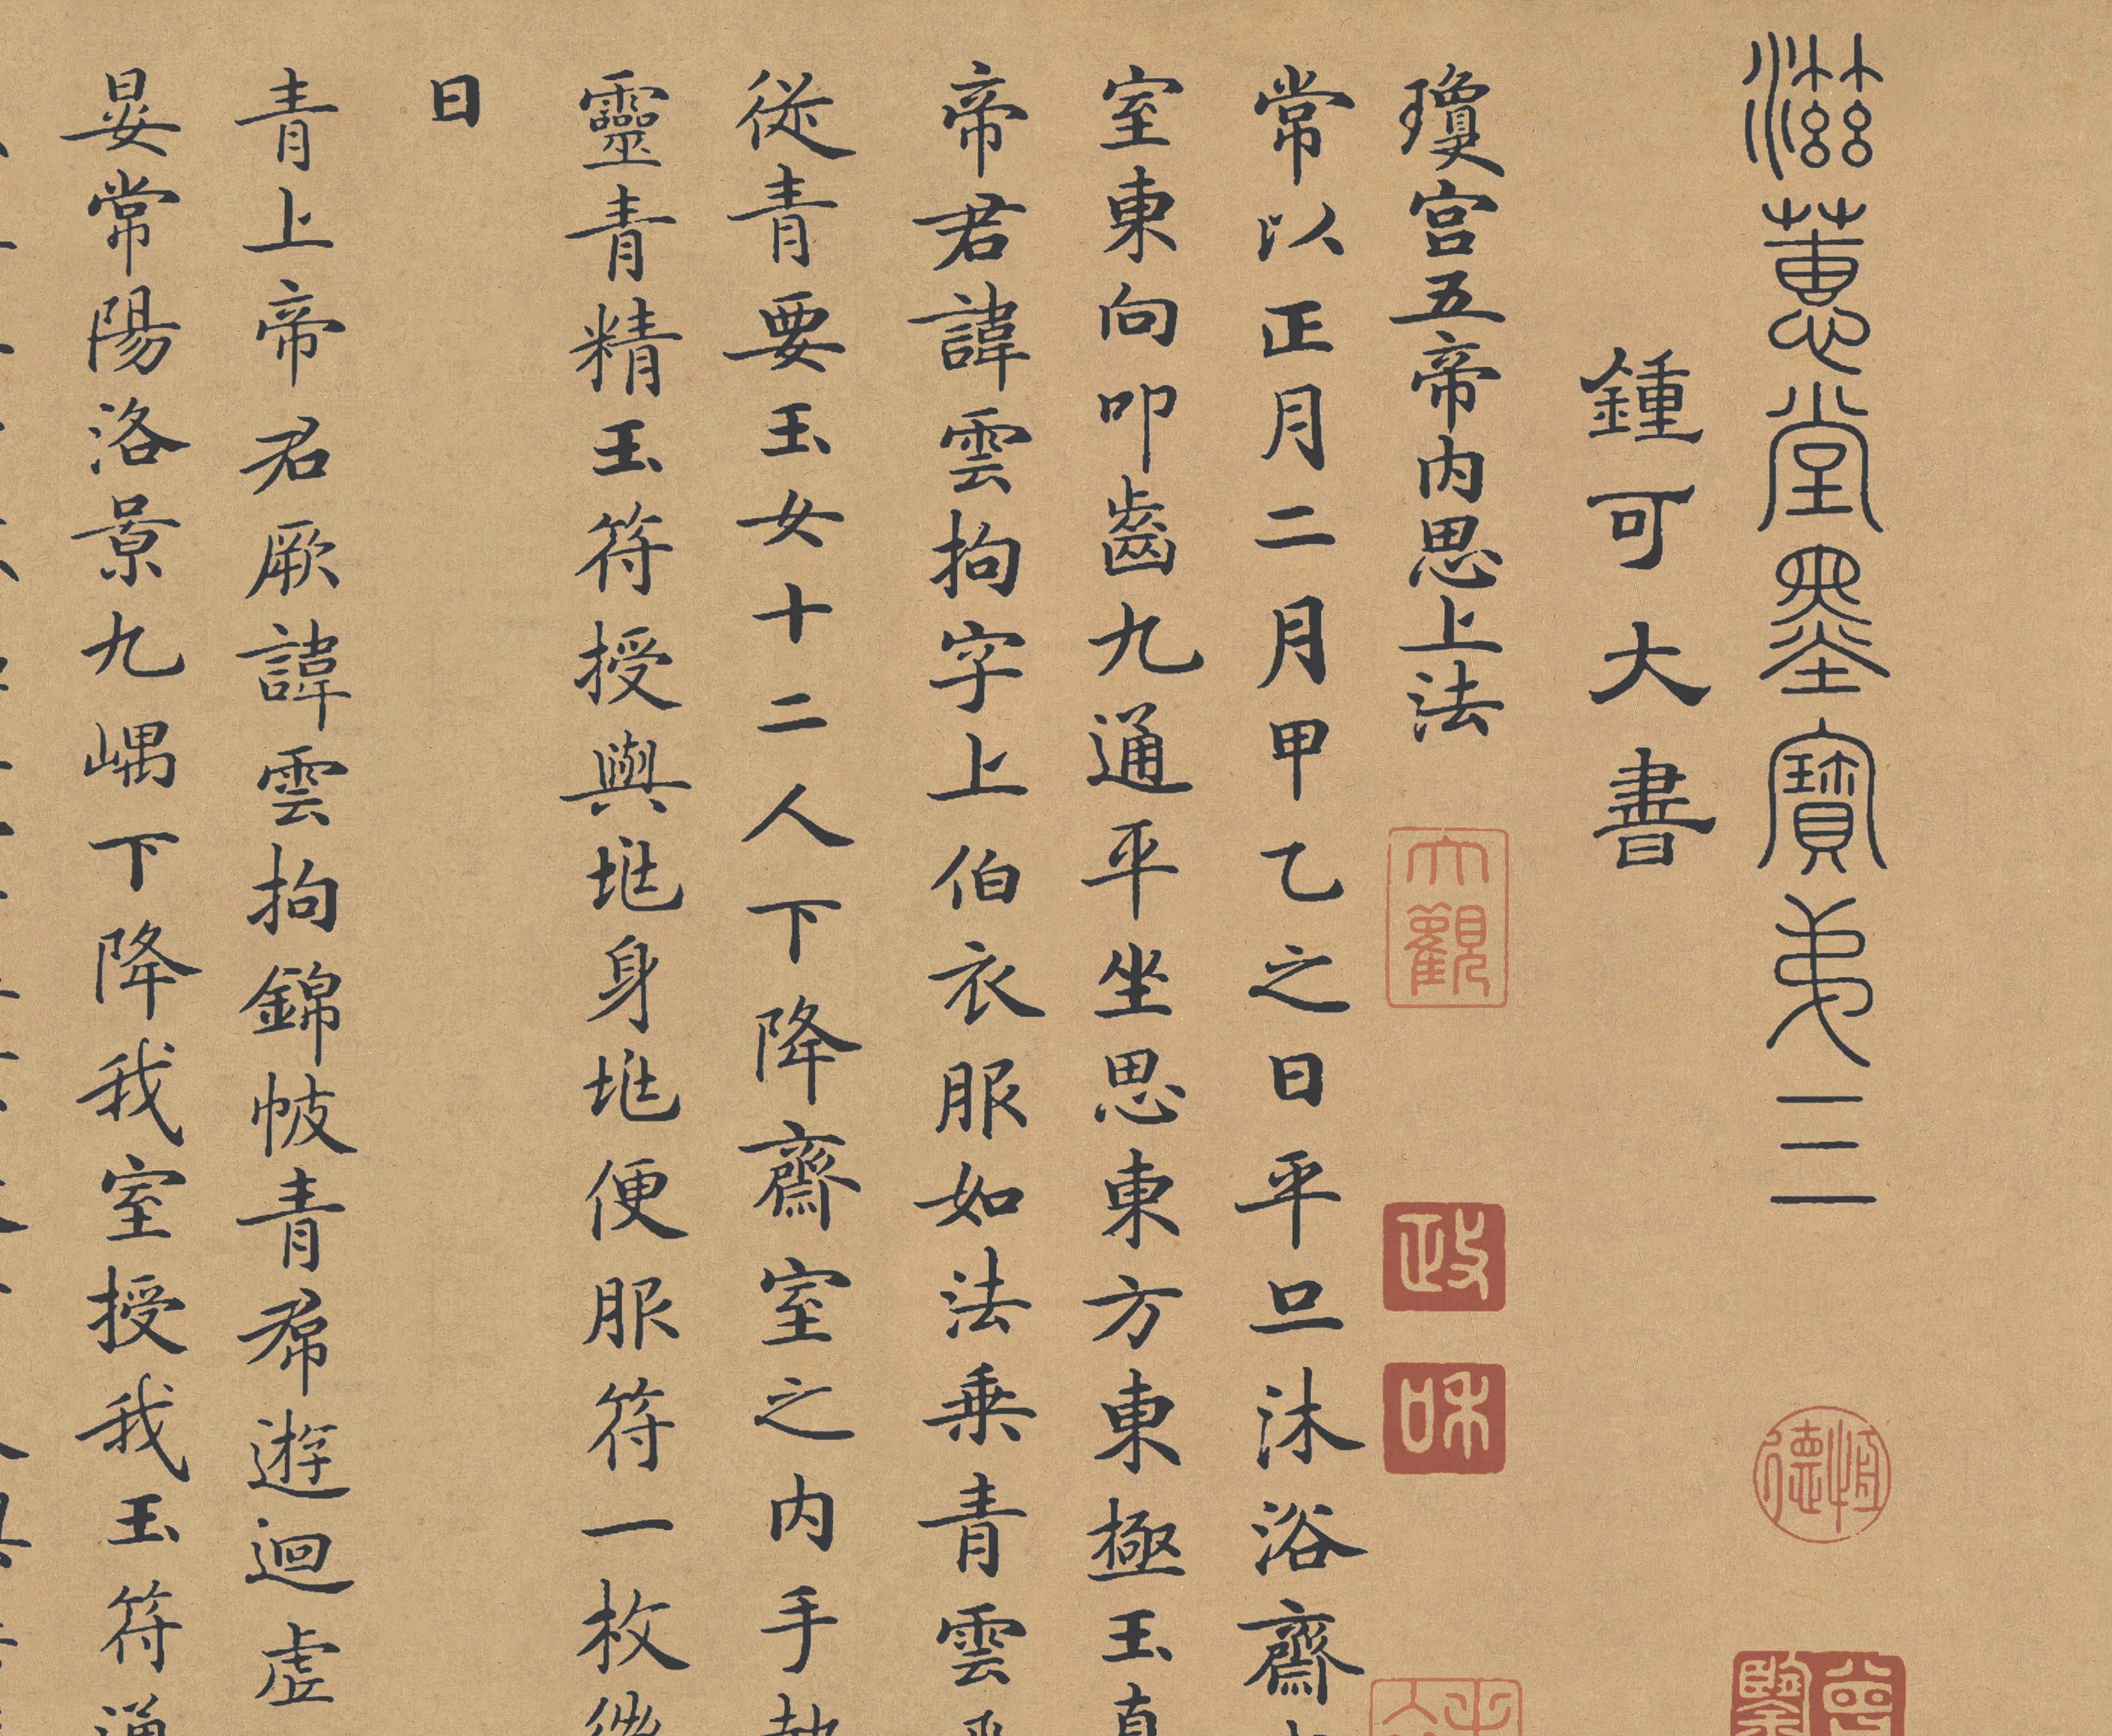 滋蕙堂墨寶弟三
鍾可大書
瓊宮五帝内思上法
大觀
政
和
恆德
常以正月二月甲乙之日平旦沐浴齋
室東向叩齒九通平坐思東方東極玉真
帝君諱雲拘字上伯衣服如法乗青雲
従青要玉女十二人下降齋室之内手執
靈青精玉符授與兆身兆便服符一枚
曰
青上帝君厥諱雲拘錦帔青帬遊迴虛
晏常陽洛景九嵎下降我室授我玉符通